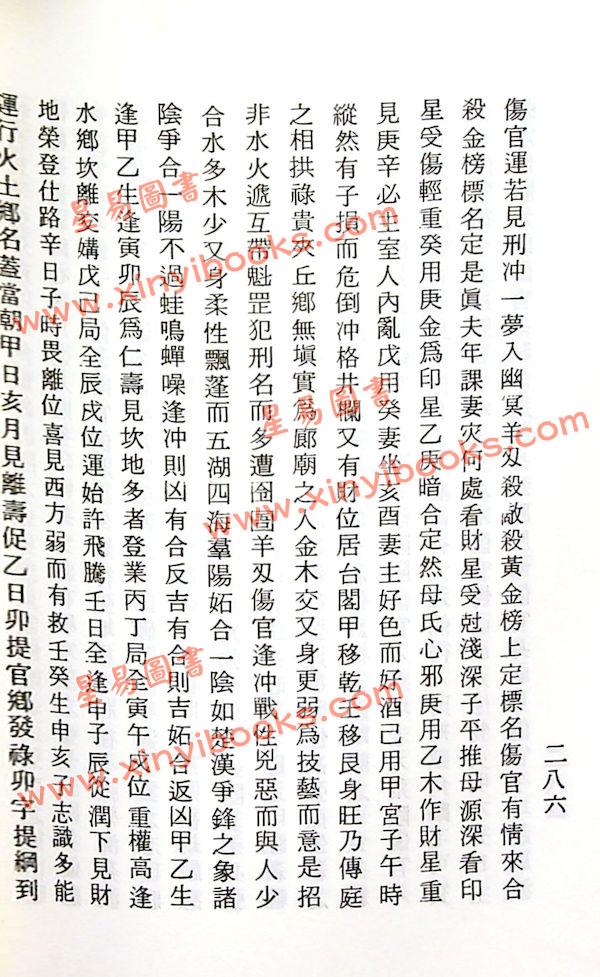 傷官運若見刑冲一夢入幽冥羊刄殺敵殺黃金榜上定標名傷官有情來合
殺金榜標名定是眞夫年課妻灾何處看財星受尅淺深子平推母源深看印
星受傷輕重癸用庚金爲印星乙庚暗合定然母氏心邪庚用乙木作財星重
見庚辛必主室人內亂戊用癸妻坐亥酉妻主好色而好酒己用甲宮子午時
縱然有子損而危倒冲格井欄又有財位居台閣甲移乾壬移艮身旺乃傳庭
之相拱祿貴夾丘鄉無塡實爲廊廟之人金木交又身更弱爲技藝而意是招
非水火遞互帶魁罡犯刑名而多遭囹圄羊刄傷官逢冲戰性兇惡而與人少
合水多木少又身柔性飄蓬而五湖四海羣陽妬合一陰如楚漢爭鋒之象諸
陰爭合一陽不過蛙鳴蟬噪逢冲則凶有合反吉有合則吉妬合返凶甲乙生
逢甲乙生逢寅卯辰爲仁壽見坎地多者登業丙丁局全寅午戌位重權高逢
水鄉坎離交媾戊己局全辰戌位運始許飛騰壬日全逢申子辰從潤下見財
地榮登仕路辛日子時畏離位喜見西方弱而有救壬癸生申亥子志識多能
運行火土鄉名蓋當朝甲日亥月見離壽促乙日卯提官鄉發祿卯字提綱到
二八六
星易圖書
www.xinyibooks.com
星易圖書
www.xinyibooks.com
星易圖書
www.xinyibooks.com